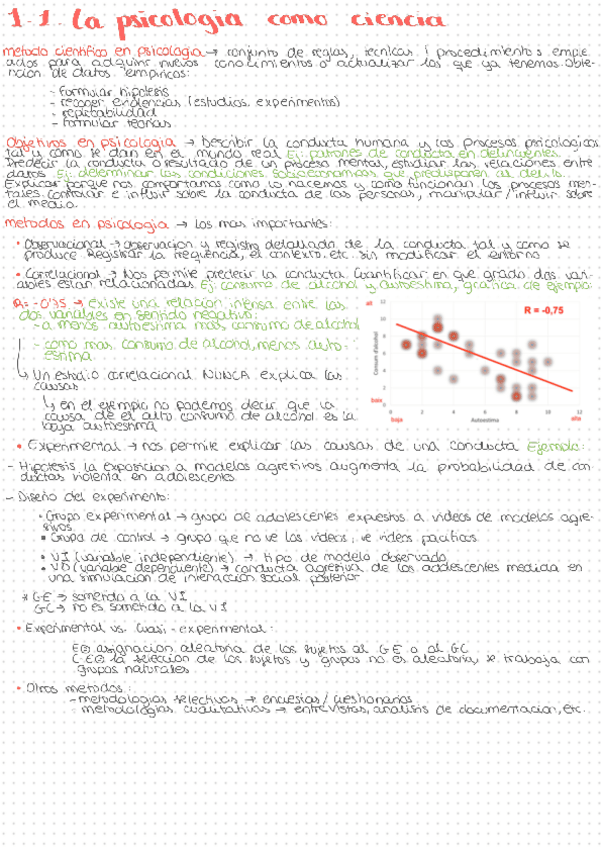 1.1. la psicologia como ciencia
metodo cientifico en psicologia → conjunto de reglas, tecnicas i procedimientos emple
ados para adquirir nuevos conocimientos o actualizar los que ya tenemos. Obte-
nción de datos empiricos:
- Formular hipotesis
- recoger evidencias (estudios. experimentos)
- repetibilidad
- Formular teorias
Objetivos en psicologia → Describir la conducta humana y los procesos psicologicos
tal y como se dan en el mundo real Ej: patrones de conducta en delincuentes
Predecir la conducta o resultado de un proceso mental, estudiar las relaciones entre
datos Ej: determinar las condiciones socioeconomicas que predisponen al delito.
Explicar porque nos comportamos como lo hacemos y como funcionan los procesos men-
tales Controlar e influir sobre la conducta de las personas, manipular/influir sobre
el medio.
metodos en psicologia → los mas importantes:
• Observacional → observacion y registro detallado de la conducta tal y como se
produce Registrar la frequencia, el contexto etc. sin modificar el entorno
• Correlacional → Nos permite predecir la conducta Cuantificar en que grado dos vari-
ables estan relacionadas Ej: consumo de alcohol y autoestima, grafica de ejemplo:
R= -0'35 → existe una relacion intensa entre las
dos variables en sentido negativo:
- a menos autoestima mas consumo de alcohol
- como mas consumo de alcohol, menos auto-
estima
↳ Un estudio correlacional NUNCA explica las
causas
↳ en el ejemplo no podemos decir que la
causa de el alto consumo de alcohol es la
baja autoestima
alt
R = -0,75
Consum d'alcohol
baix
0 2 4 6 8 10 12
baixa
Autoestima
alta
• Experimental → nos permite explicar las causas de una conducta Ejemplo:
- Hipotesis la exposicion a modelos agresivos augmenta la probabilidad de con
ductas violenta en adolescentes
- Diseño del experimento:
• Grupo experimental → grupo de adolescentes expuestos a videos de modelos agre-
sivos
• Grupo de control → grupo que no ve los videos, ve videos pacificos
• VI (variable independiente) → tipo de modelo observado
• VD (variable dependiente) → conducta agresiva de los adolescentes medida en
una simulacion de interaccion social posterior
* GE → sometido a la VI
GC → no es sometido a la VI
• Experimental vs. Cuasi-experimental:
E asignacion aleatoria de los sujetos al GE o al GC
C.E la seleccion de los sujetos y grupos no es aleatoria, se trabaja con
grupos naturales
• Otros metodos:
- metodologias selectivas → encuestas/cuestionarios
- metodologias cualitativas → entrevistas, analisis de documentacion, etc.